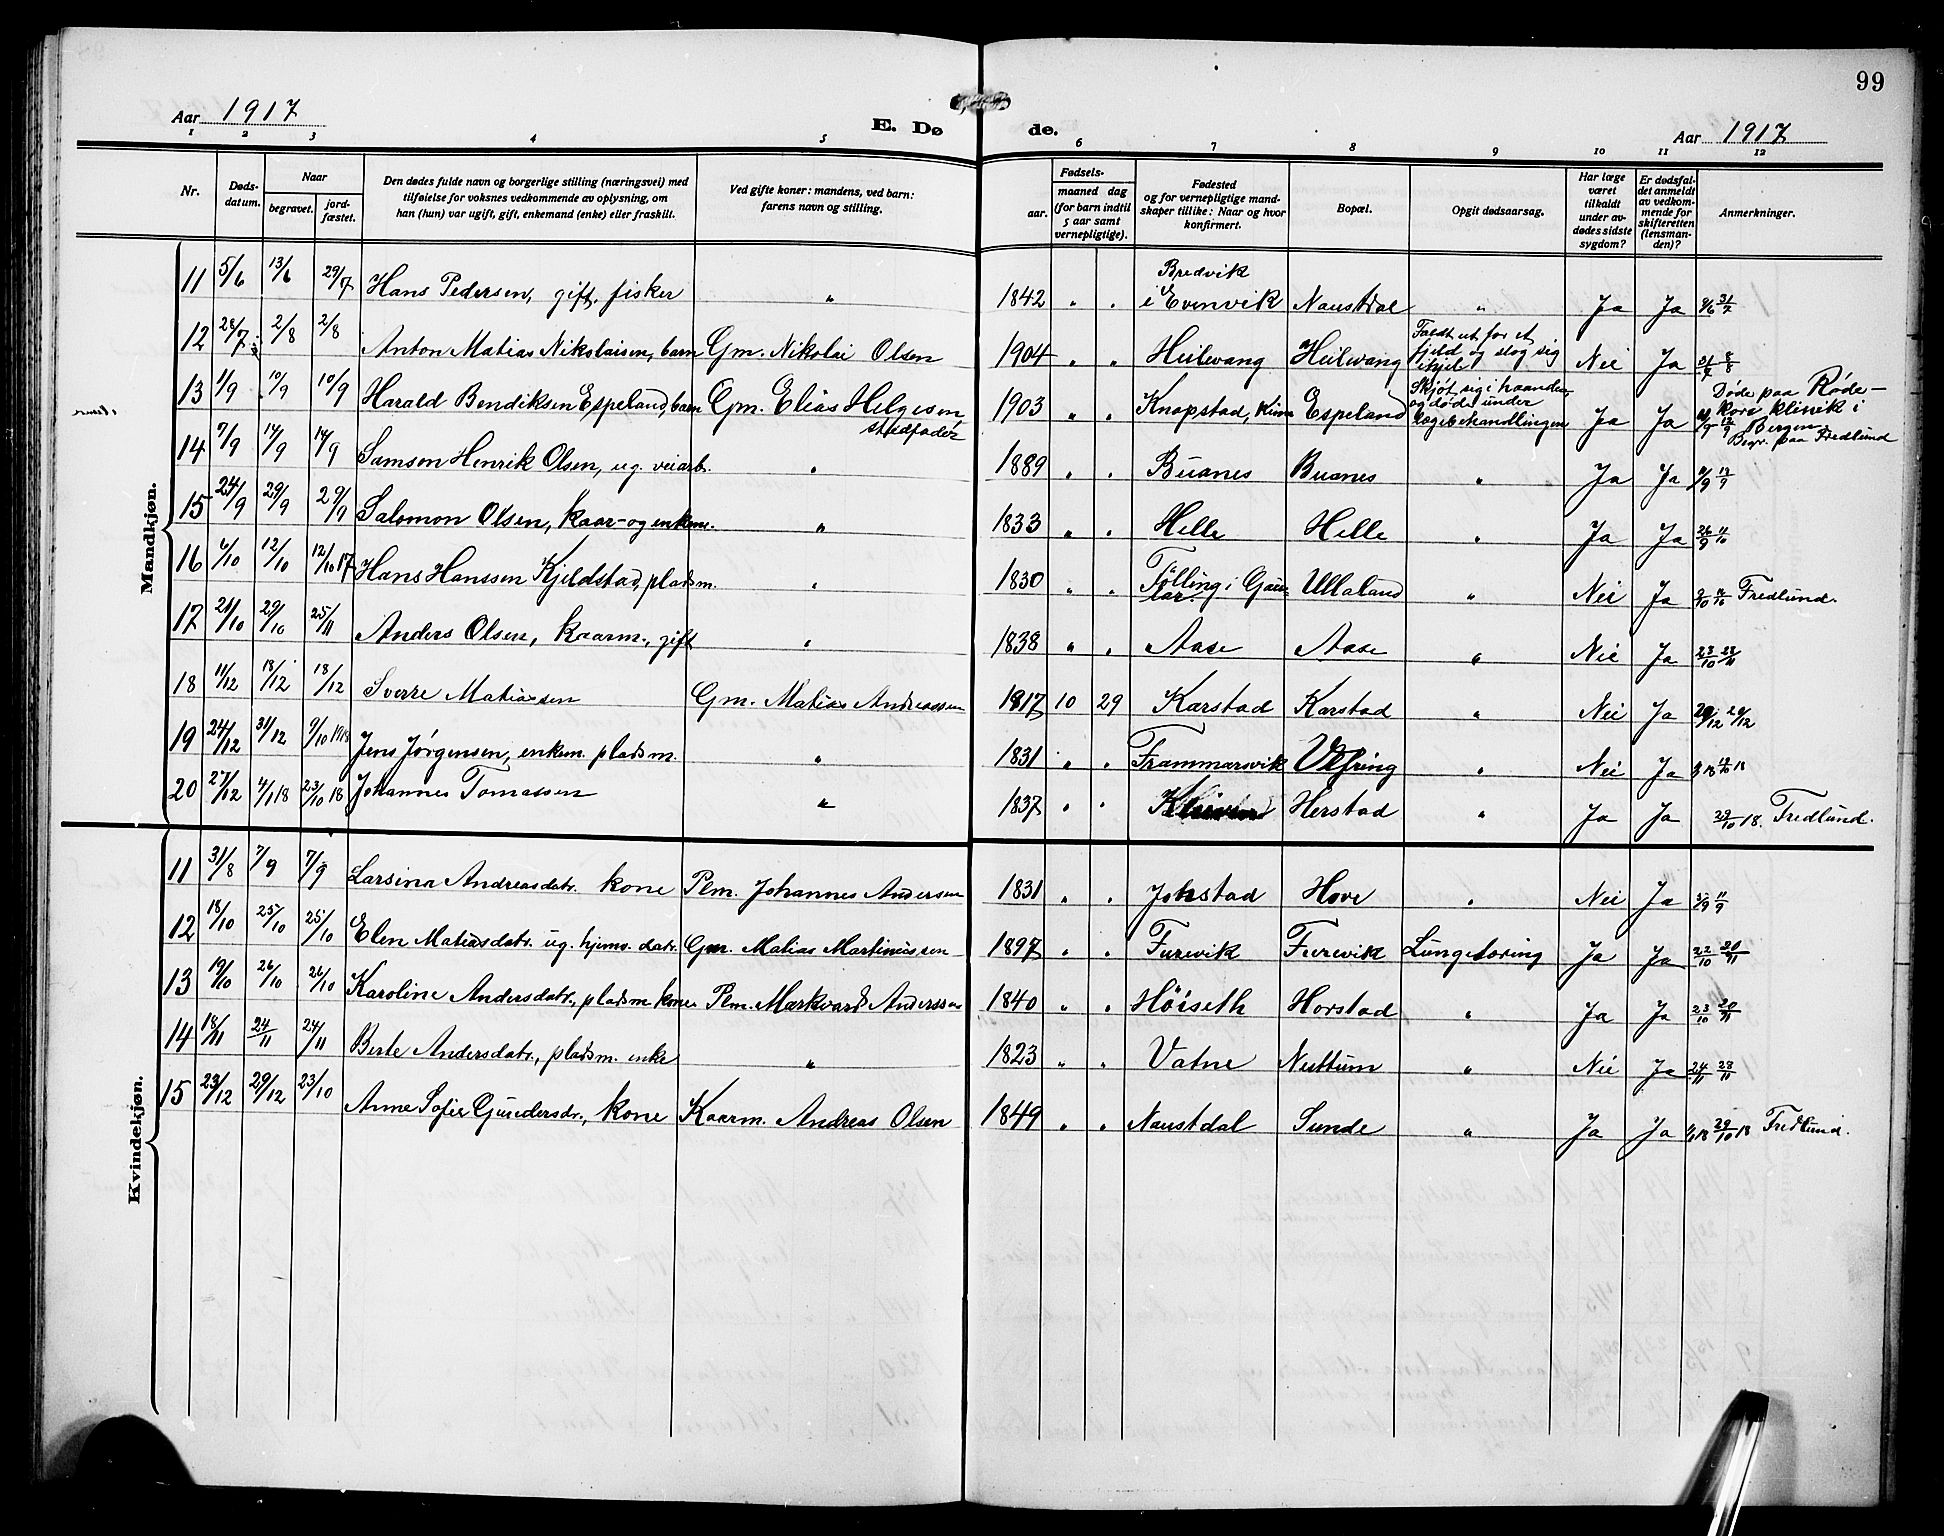 99
Aar 1917
E. Dø
de.
Aar 1917
1 2 3 4 5 6 7 8 9 10 11 12
Nr.
Døds-
datum.
Naar
begravet.
jord-
fæstet.
Den dødes fulde navn og borgerlige stilling (næringsvei) med
tilføielse for voksnes vedkommende av oplysning, om
han (hun) var ugift, gift, enkemand (enke) eller fraskilt.
Ved gifte koner: mandens, ved barn:
farens navn og stilling.
Fødsels-
aar.
maaned dag
(for barn indtil
5 aar samt
vernepligtige).
Fødested
og for vernepligtige mand-
skaper tillike: Naar og hvor
konfirmert.
Bopæl.
Opgit dødsaarsag.
Har læge
været
tilkaldt
under av-
dødes sidste
sygdom?
Er dødsfal-
det anmeldt
av vedkom-
mende for
skifteretten
(lensman-
den)?
Anmerkninger.
Mandkjøn.
11 5/6 13/6 29/7 Hans Pedersen, gift, fisker " 1842 " " Bredvik i Evenvik Naustdal " Ja Ja 31/7
12 28/7 2/8 2/8 Anton Matias Nikolaisen, barn Gm. Nikolai Olsen 1904 " " Heilevang Heilevang Faldt ut for et fjeld og slog sig ihjel Nei Ja 8/8
13 1/9 10/9 10/9 Harald Bendiksen Espeland, barn Gm. Elias Helgesen stedfader 1903 " " Knapstad, Kinn Espeland Skjøt sig i haanden, og døde under lægebehandlingen Ja Ja 12/9 Døde paa Røde-kors klinik i Bergen. Begr. paa Fredlund
14 7/9 14/9 14/9 Samson Henrik Olsen, ug. veiarb. " 1889 " " Buanes Buanes " Ja Ja 17/9
15 24/9 29/9 29/9 Salomon Olsen, kaar- og enkem. " 1833 " " Helle Helle " Ja Ja 26/9
16 12/10 12/10 17 Hans Hanssen Kjeldstad, pladsm. " 1830 " " Tølling i Gaular. Ullaland " Nei Ja Fredlund.
17 21/10 29/10 25/11 Anders Olsen, kaarm., gift " 1838 " " Aase Aase " Nei Ja 23/10 28/11
18 11/12 18/12 18/12 Sverre Matiassen Gm. Matias Andreassen 1917 10 29 Karstad Karstad " Nei Ja
19 24/12 31/12 9/10 1918 Jens Jørgensen, enkem. pladsm. " 1831 " " Frammarsvik Vefring " Nei Ja
20 27/12 4/1 18 23/10 18 Johannes Tomassen " 1837 " " Herstad " Ja Ja 29/10 18. Fredlund.
Kvindekjøn.
11 31/8 7/9 7/9 Larsina Andreasdatr. kone Plm. Johannes Andersen 1831 " " Johstad Hove " Nei Ja 11/9
12 18/10 25/10 25/10 Elen Matiasdatr. ug. hjemv. datr. Gm. Matias Martinussen 1897 " " Furevik Furevik Lungetæring Ja Ja 22/10 20/11
13 19/10 26/10 26/10 Karoline Andersdatr., pladsm. kone Plm. Markvard Anderssen 1840 " " Höiseth Horstad " Ja Ja 23/10 20/11
14 18/11 24/11 24/11 Berte Andersdatr., pladsm. enke " 1823 " " Vatne Nuttum " Nei Ja 24/11 28/11
15 23/12 29/12 23/10 Anne Sofie Gundersdr., kone Kaarm. Andreas Olsen 1849 " " Naustdal Sunde " Ja Ja 29/10 18 Fredlund.